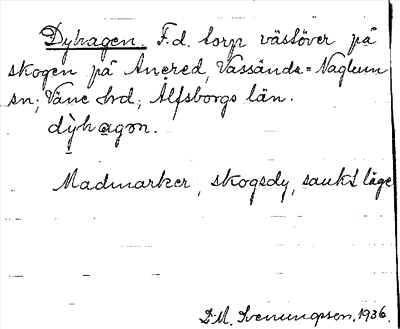 Dyhagen. F.d. torp västöver på
skogen på Anered, Vassända=Naglum
sn; Väne hrd, Älfsborgs län.
dỳhagɒn.
Madmarker, skogsdy, sankt läge
D.M. Svenungsson. 1936.